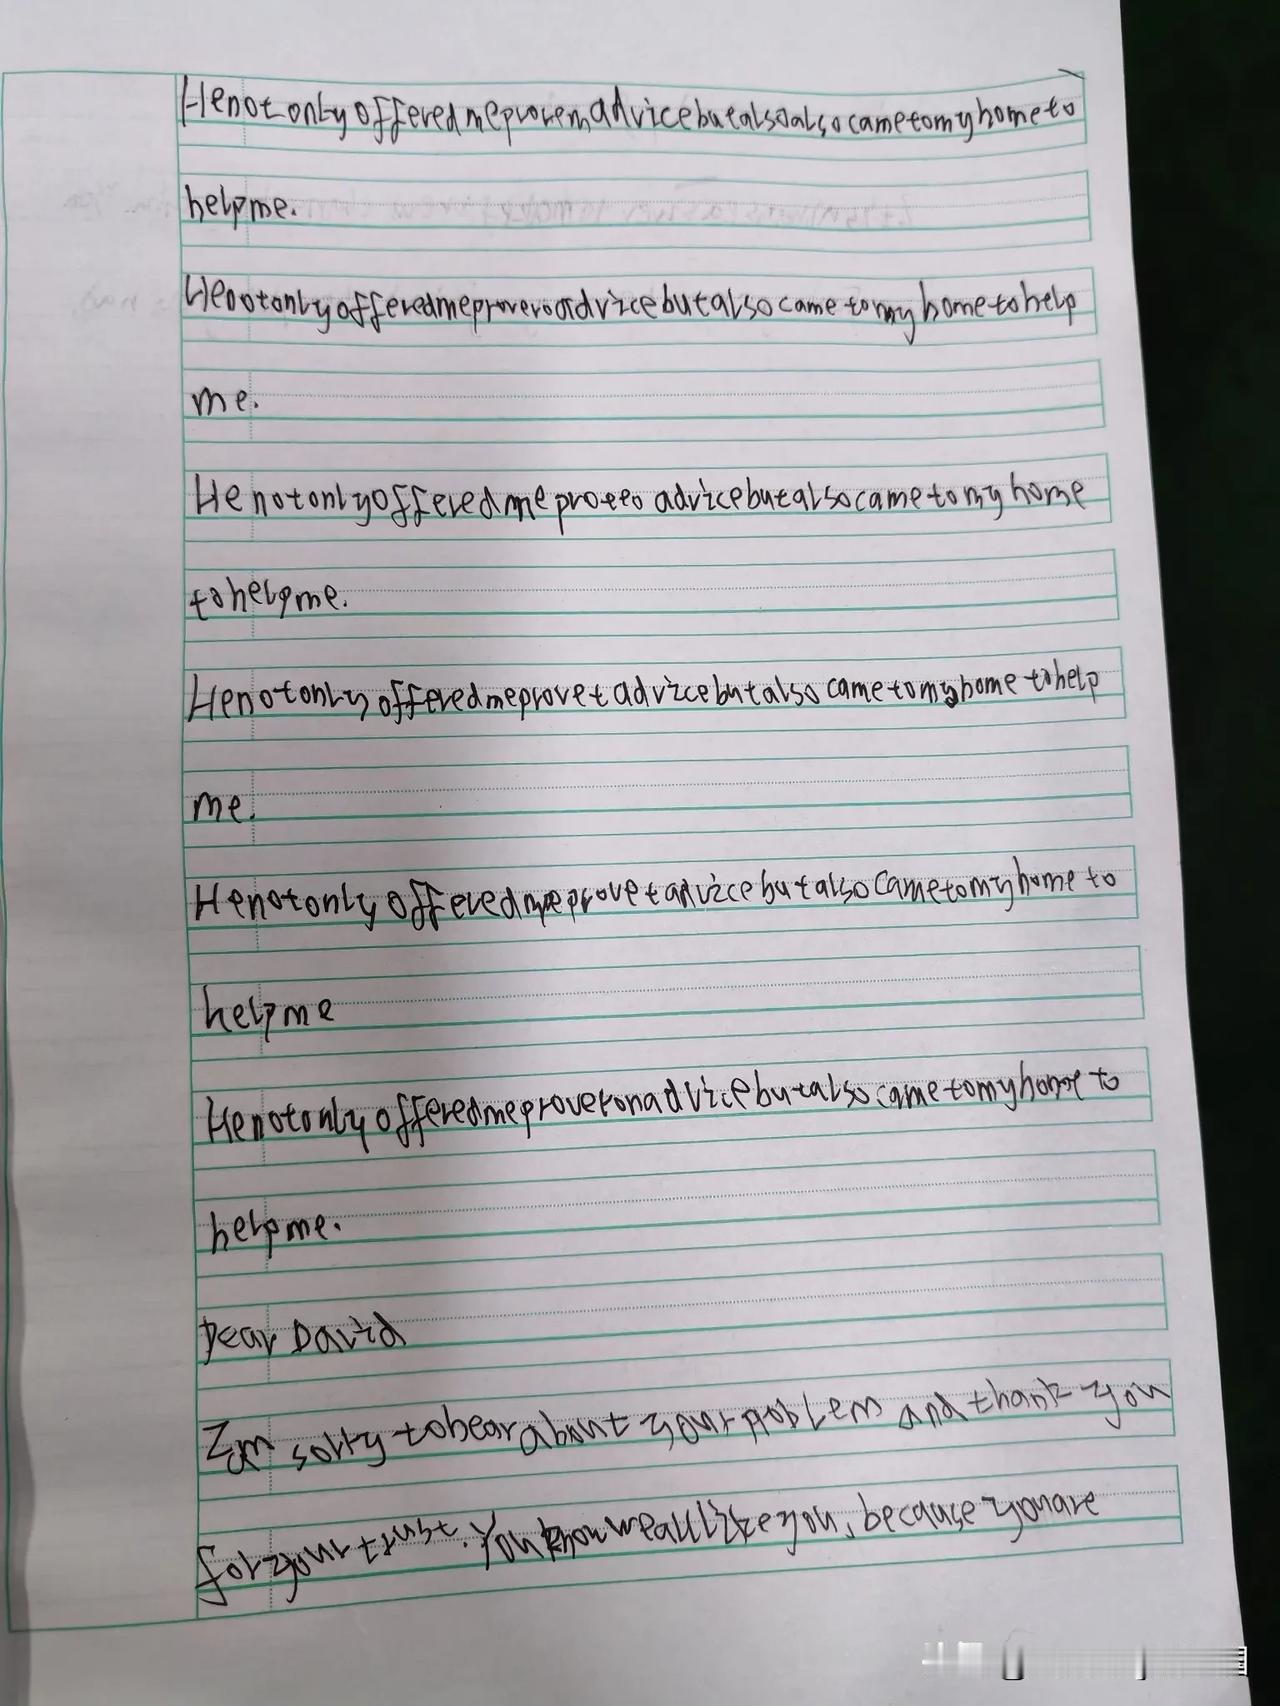 He not only offered me provem advice but also also came to my home to
help me.
He not only offered me provero advice but also came to my home to help
me.
He not only offered me proteo advice but also came to my home
to help me.
He not only offered me provet advice but also came to my home to help
me.
He not only offered me provet advice but also came to my home to
help me
He not only offered me proveron advice but also came to my home to
help me.
Dear David
I am sorry to hear about your problem and thank you
for your trust. You know we all like you, because you are